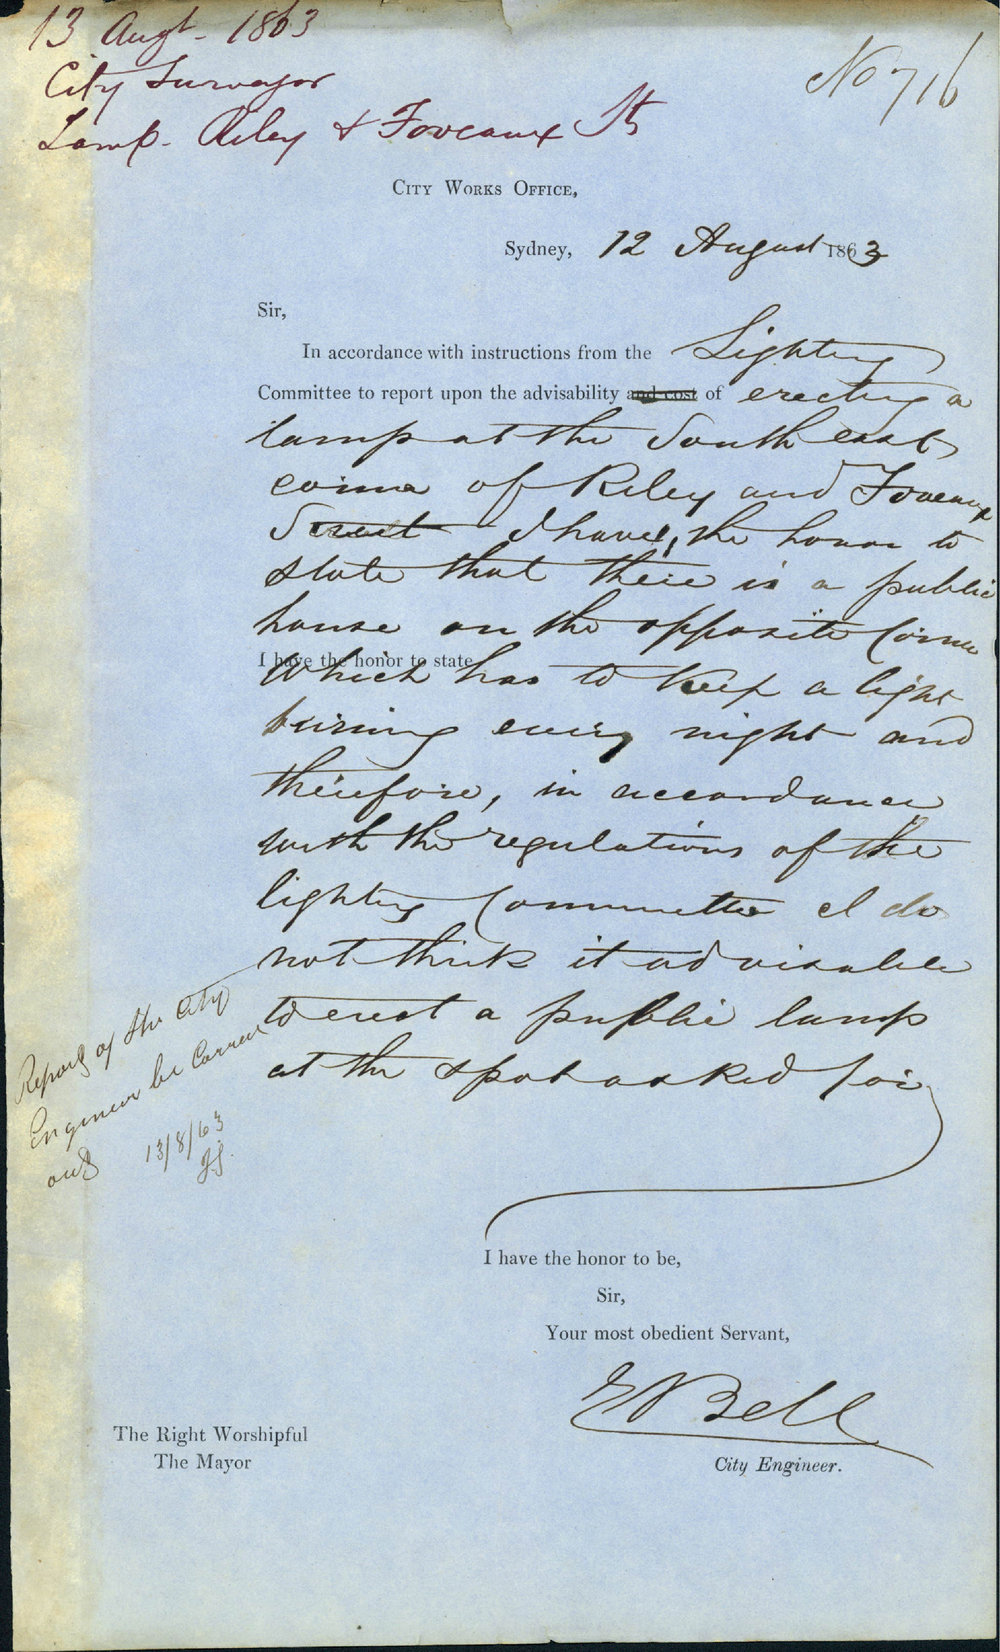 13 Augt. 1863
City Surveyor
Lamp. Riley & Foveaux Sts
No 716
City Works Office,
Sydney, 12 August 1863
Sir,
In accordance with instructions from the Lighting
Committee to report upon the advisability and cost of erecting a
lamp at the South east
corner of Riley and Foveaux
Street I have, the honor to
state that there is a public
house on the opposite Corner
I have the honor to state
which has to keep a light
burning every night and
therefore, in accordance
with the regulations of the
lighting Committee I do
not think it advisable
to erect a public lamp
at the spot asked for
Report of the City
Engineer be carried
out
13/8/63
I have the honor to be,
Sir,
Your most obedient Servant,
E Bell
City Engineer.
The Right Worshipful
The Mayor